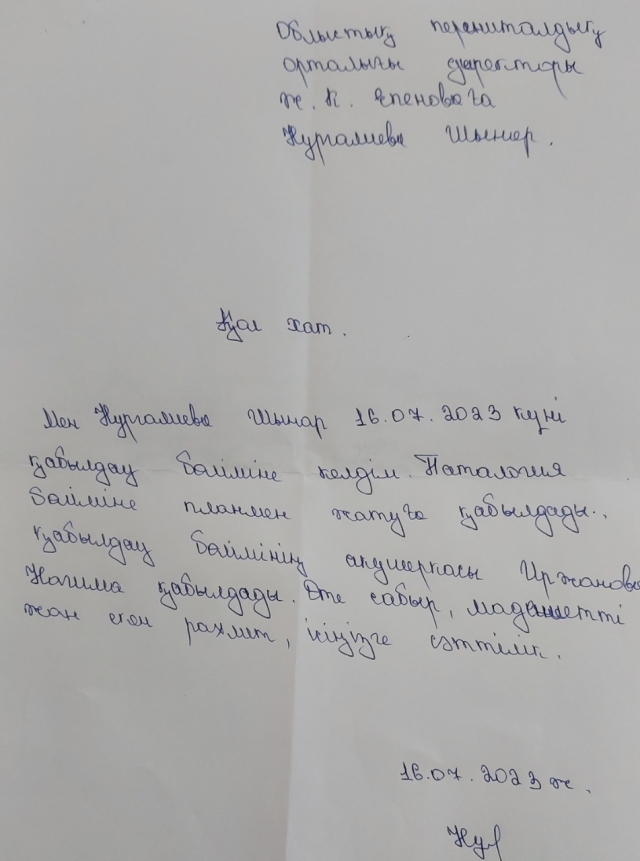 Облыстық перениталдық
орталығы директоры
Ж. К. Епеноваға
Нургалиева Шынар.
Қол хат.
Мен Нургалиева Шынар 16.07.2023 күні
қабылдау бөліміне келдім. Паталогия
бөліміне планмен жатуға қабылдады.
қабылдау бөлімінің акушеркасы Иржанова
Нагима қабылдады. Өте сабыр, мәдениетті
жан екен рахмет, ісіңізге сәттілік.
16.07.2023 ж.